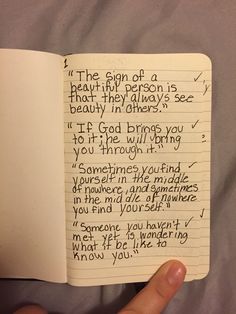 1
"The sign of a
beautiful person is
that they always see
beauty in others."
"If God brings you
to it; he will bring
you through it."
"Sometimes you find
yourself in the middle
of nowhere, and sometimes
in the middle of nowhere
you find yourself."
"Someone you haven't
met yet is wondering
what it be like to
know you."